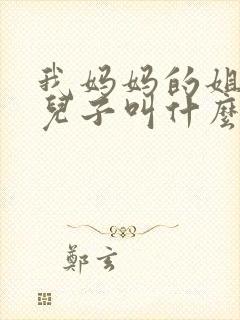 我妈妈的姐
兒子叫什麼
鄭玄